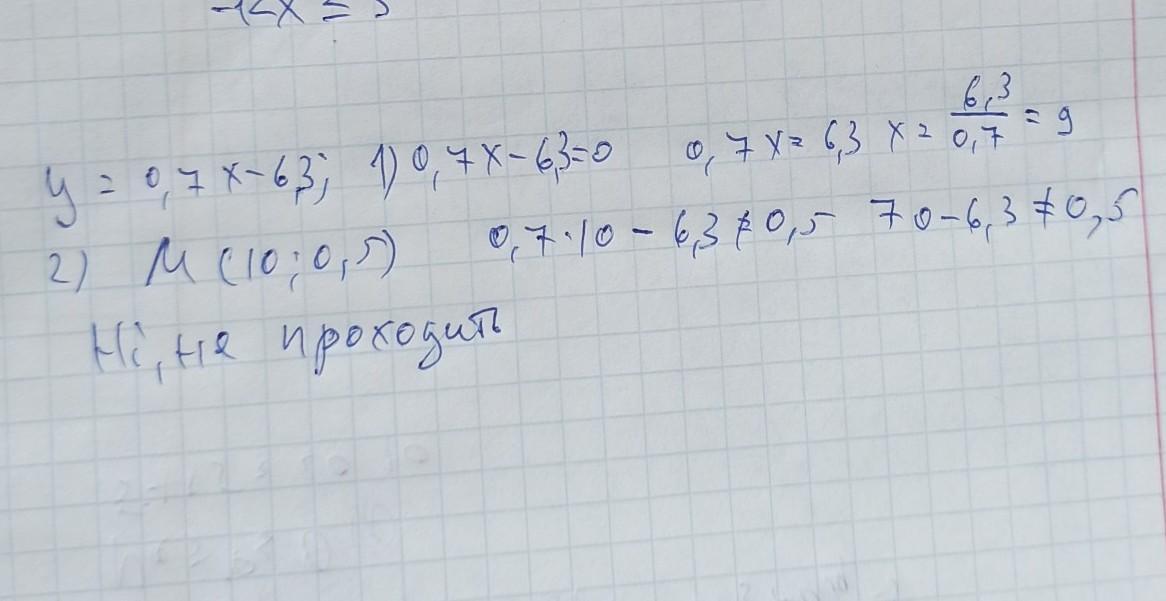 -12x = 3
y = 0,7x-6,3; 1) 0,7x-6,3=0 0,7x=6,3 x= 6,3/0,7 = 9
2) M (10; 0,5) 0,7·10 - 6,3 ≠ 0,5 70-6,3 ≠ 0,5
Ні, не проходить